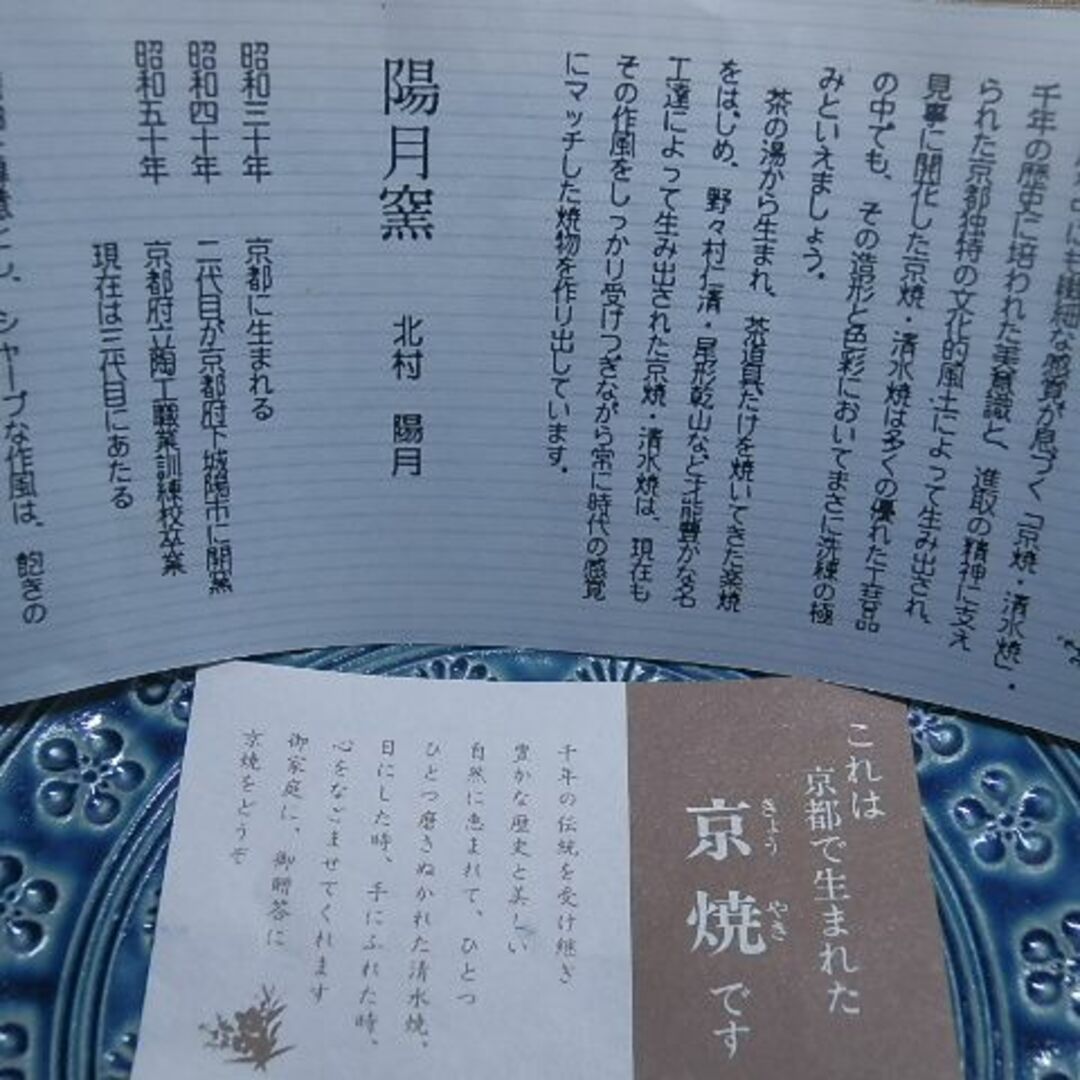 にも繊細な感覚が息づく「京焼・清水焼」・
千年の歴史に培われた美意識と、進取の精神に支え
られた京都独特の文化的風土によって生み出され、
見事に開化した京焼・清水焼は多くの優れた工芸品
の中でも、その造形と色彩においてまさに洗練の極
みといえましょう。
茶の湯から生まれ、茶道具だけを焼いてきた楽焼
をはじめ、野々村仁清・尾形乾山など才能豊かな名
工達によって生み出された京焼・清水焼は、現在も
その作風をしっかり受けつぎながら常に時代の感覚
にマッチした焼物を作り出しています。
陽月窯 北村 陽月
昭和三十年 京都に生まれる
昭和四十年 二代目が京都府下城陽市に開窯
昭和五十年 京都府立陶工職業訓練校卒業
現在は三代目にあたる
とし、シャープな作風は、飽きの
これは
京都で生まれた
京焼です
きょう
やき
千年の伝統を受け継ぎ
豊かな歴史と美しい
自然に恵まれて、ひとつ
ひとつ磨きぬかれた清水焼、
目にした時、手にふれた時、
心をなごませてくれます
御家庭に、御贈答に
京焼をどうぞ